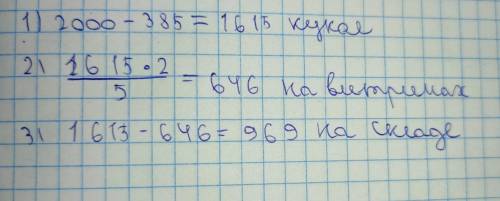 1) 2000 - 385 = 1615 кукол
2) 1615 · 2 / 5 = 646 на витринах
3) 1615 - 646 = 969 на складе